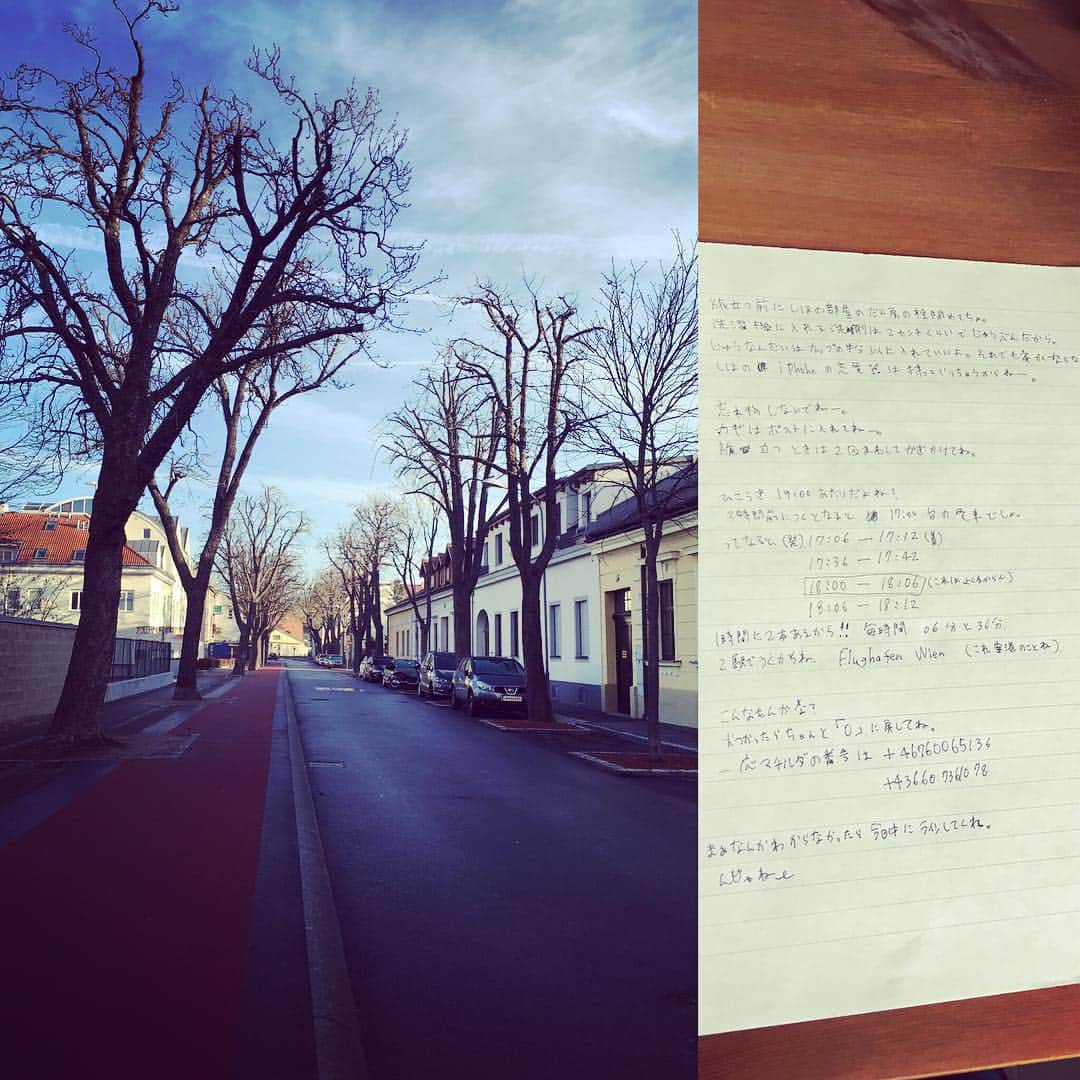 旅立つ前にしほの部屋のだん房の栓閉めてね。
洗濯機に入れる洗剤は2センチくらいでじゅうぶんだから。
じゅうなんざいはカップの半分くらい入れていいよ。それでも
しほの iphone の充電器は持っていっちゃうからねー。
忘れ物しないでねー。
カギはポストに入れてねー。
旅立つときは2回まわしてかぎかけてね。
ひこうき 19:00 あたりだよね?
2時間前につくとなると 17:00 台の電車でしょ。
ってなると (発) 17:06 — 17:12 (着)
17:36 — 17:42
18:00 — 18:06 (これはよくわからん)
18:06 — 18:12
1時間に2本あるから!! 毎時間 06分と36分
2駅でつくからね。 Flughafen Wien (これ空港のことね)
こんなもんかな?
つかったらちゃんと「0」に戻してね。
一応マチルダの番号は +46760065136
+43660 7361078
まぁなんかわからなかったら今日中にラインしてくれ。
んじゃねー